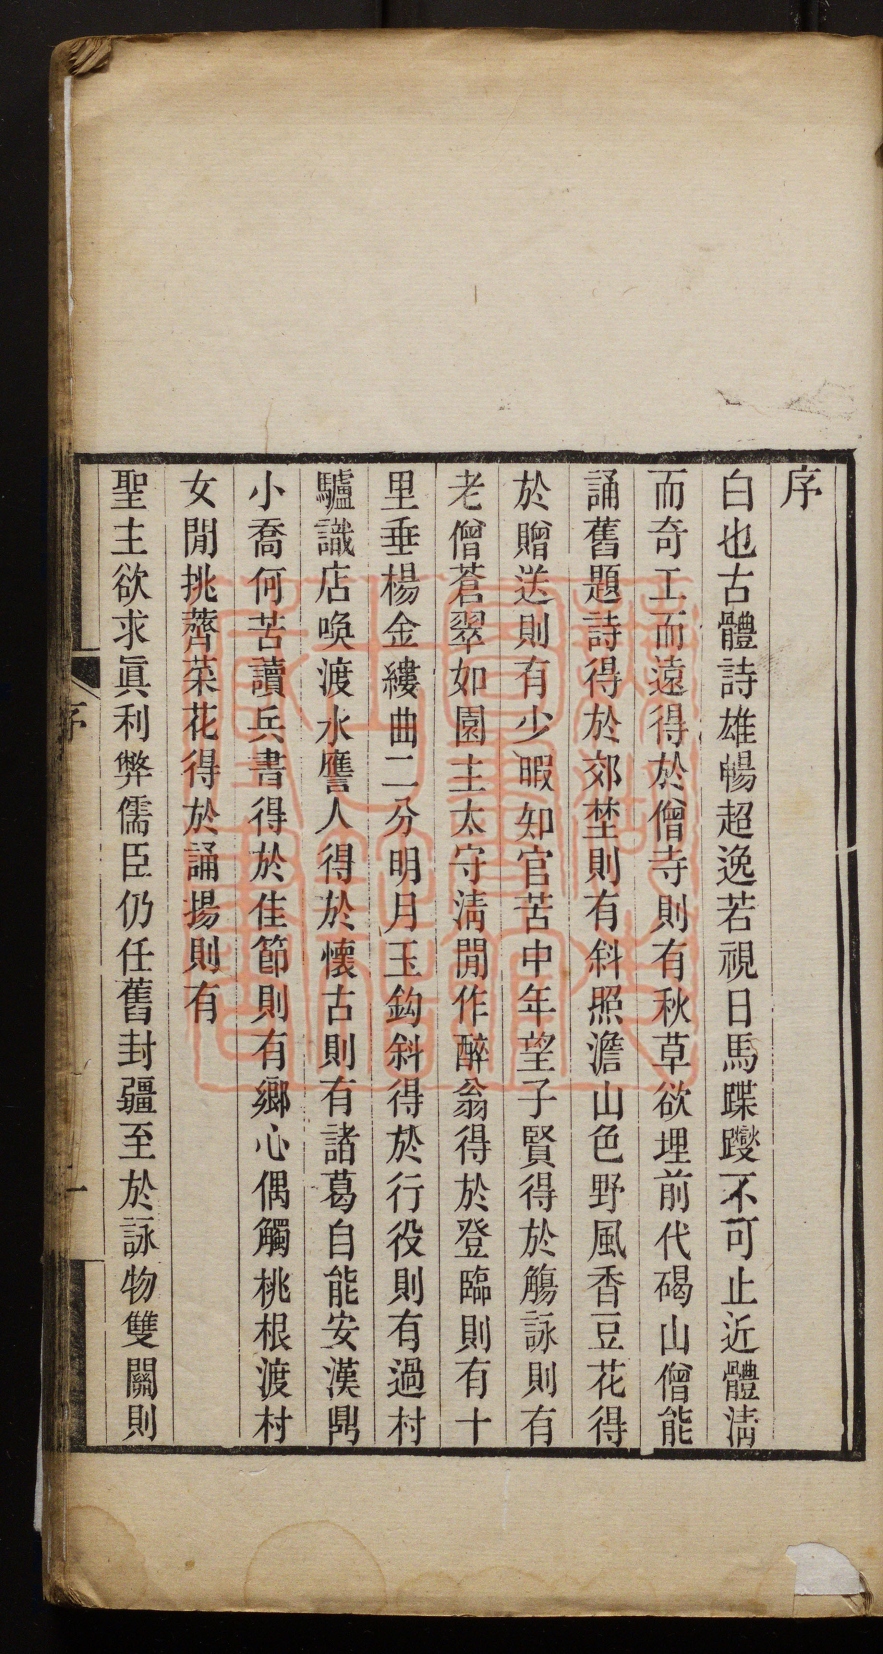 序
白也古體詩雄暢超逸若視日馬蹀躞不可止近體淸
而奇工而遠得於僧寺則有秋草欲埋前代碣山僧能
誦舊題詩得於郊埜則有斜照澹山色野風香豆花得
於贈送則有少暇知官苦中年望子賢得於觴詠則有
老僧蒼翠如園主太守淸閒作醉翁得於登臨則有十
里垂楊金縷曲二分明月玉鈎斜得於行役則有過村
驢識店喚渡水譍人得於懷古則有諸葛自能安漢鼎
小喬何苦讀兵書得於佳節則有鄉心偶觸桃根渡村
女閒挑薺菜花得於誦揚則有
聖主欲求眞利弊儒臣仍任舊封疆至於詠物雙關則
序
一